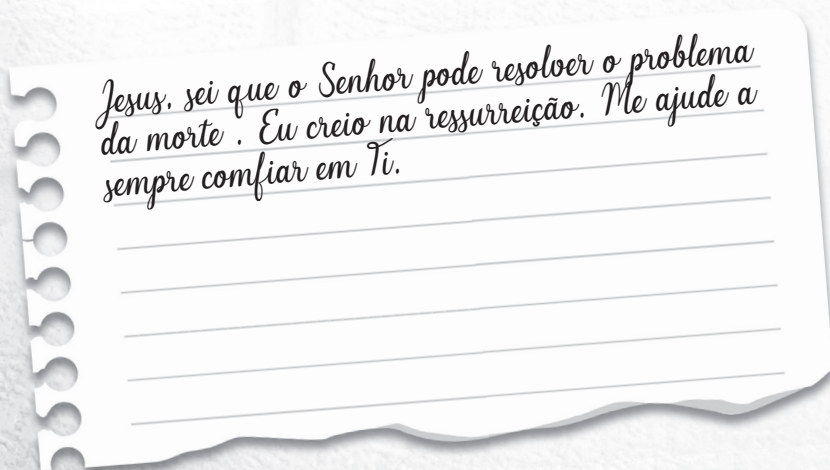 Jesus, sei que o Senhor pode resolver o problema
da morte . Eu creio na ressurreição. Me ajude a
sempre comfiar em Ti.